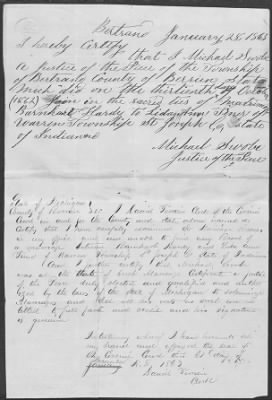 Bertrand January 28 1863
I hereby Certify
that I Michael Swobe
a Justice of the Peace of the Township
of Bertrand County of Berrien State
Mich did on the thirteenth of October
(1862) Join in the sacred ties of matrimony
Burnhart Hardy to
Warren Township St Joseph Co State
of Indiana
Michael Swobe
Justice of the Peace
State of Michigan
County of Berrien I David Clerk of the Circuit
Court in and for the County and State above named do
Certify that I have carefully examined the Marriage Records
in my office and am unable to find any Record of
a marriage between Burnhart Hardy of State and
of Warren Township St Joseph Co State of Indiana
I also further certify that Michael Swobe
was at the date of such Marriage Certificate a Justice
of the Peace duly elected and qualified and authorized
by the laws of the State of Michigan to solemnize
Marriages and that all his acts as such are entitled
to full faith and credit and his signature
is genuine
In testimony whereof I have hereunto set
my hand and affixed the seal of
the Circuit Court this day of
A.D. 1863
David
Clerk